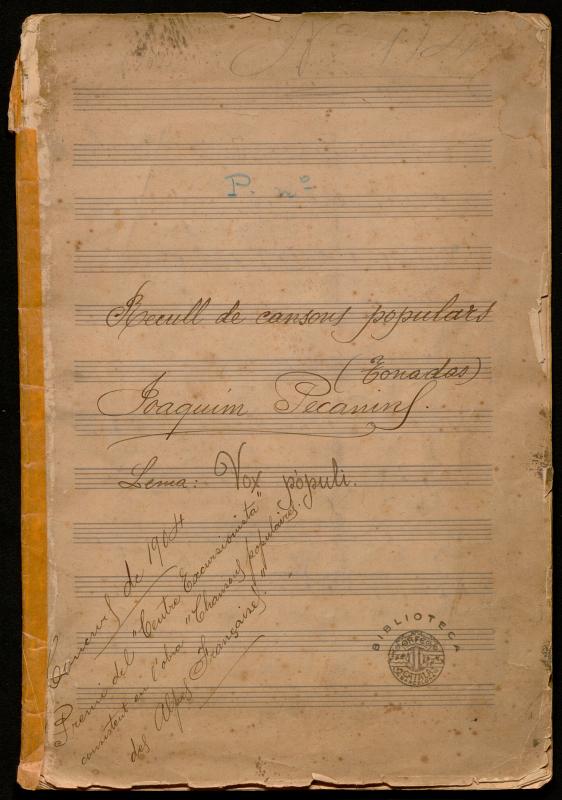 Nº 174
P. nº
Recull de cansons populars
(Tonadas)
Joaquim Pecanins.
Lema: Vox pópuli.
Concurs de 1904
Premi del "Centre Excursionista"
consistent en l'obra "Chansons populaires
des Alpes Françaises."
BIBLIOTECA
ORFEO
CATALA